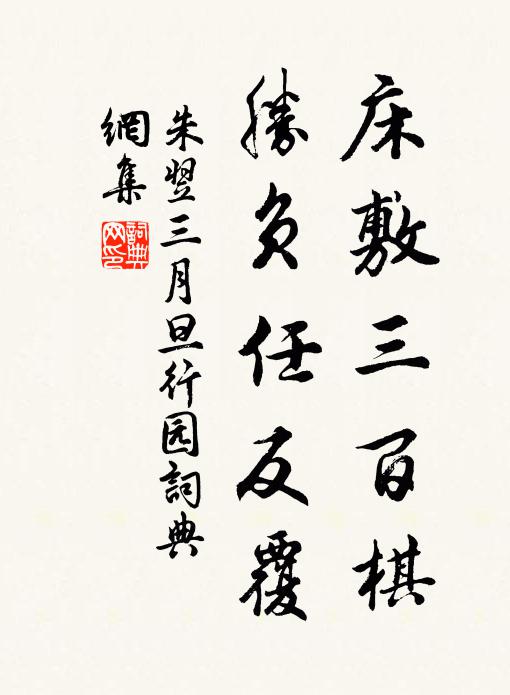 床敷三百棋
勝負任反覆
朱翌三月旦行园詞典
網集
詞典
网印